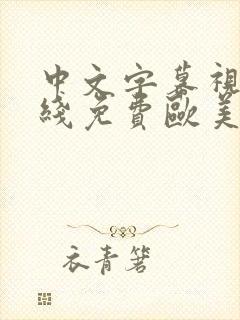 中文字幕視
綫免費歐美
衣青箬